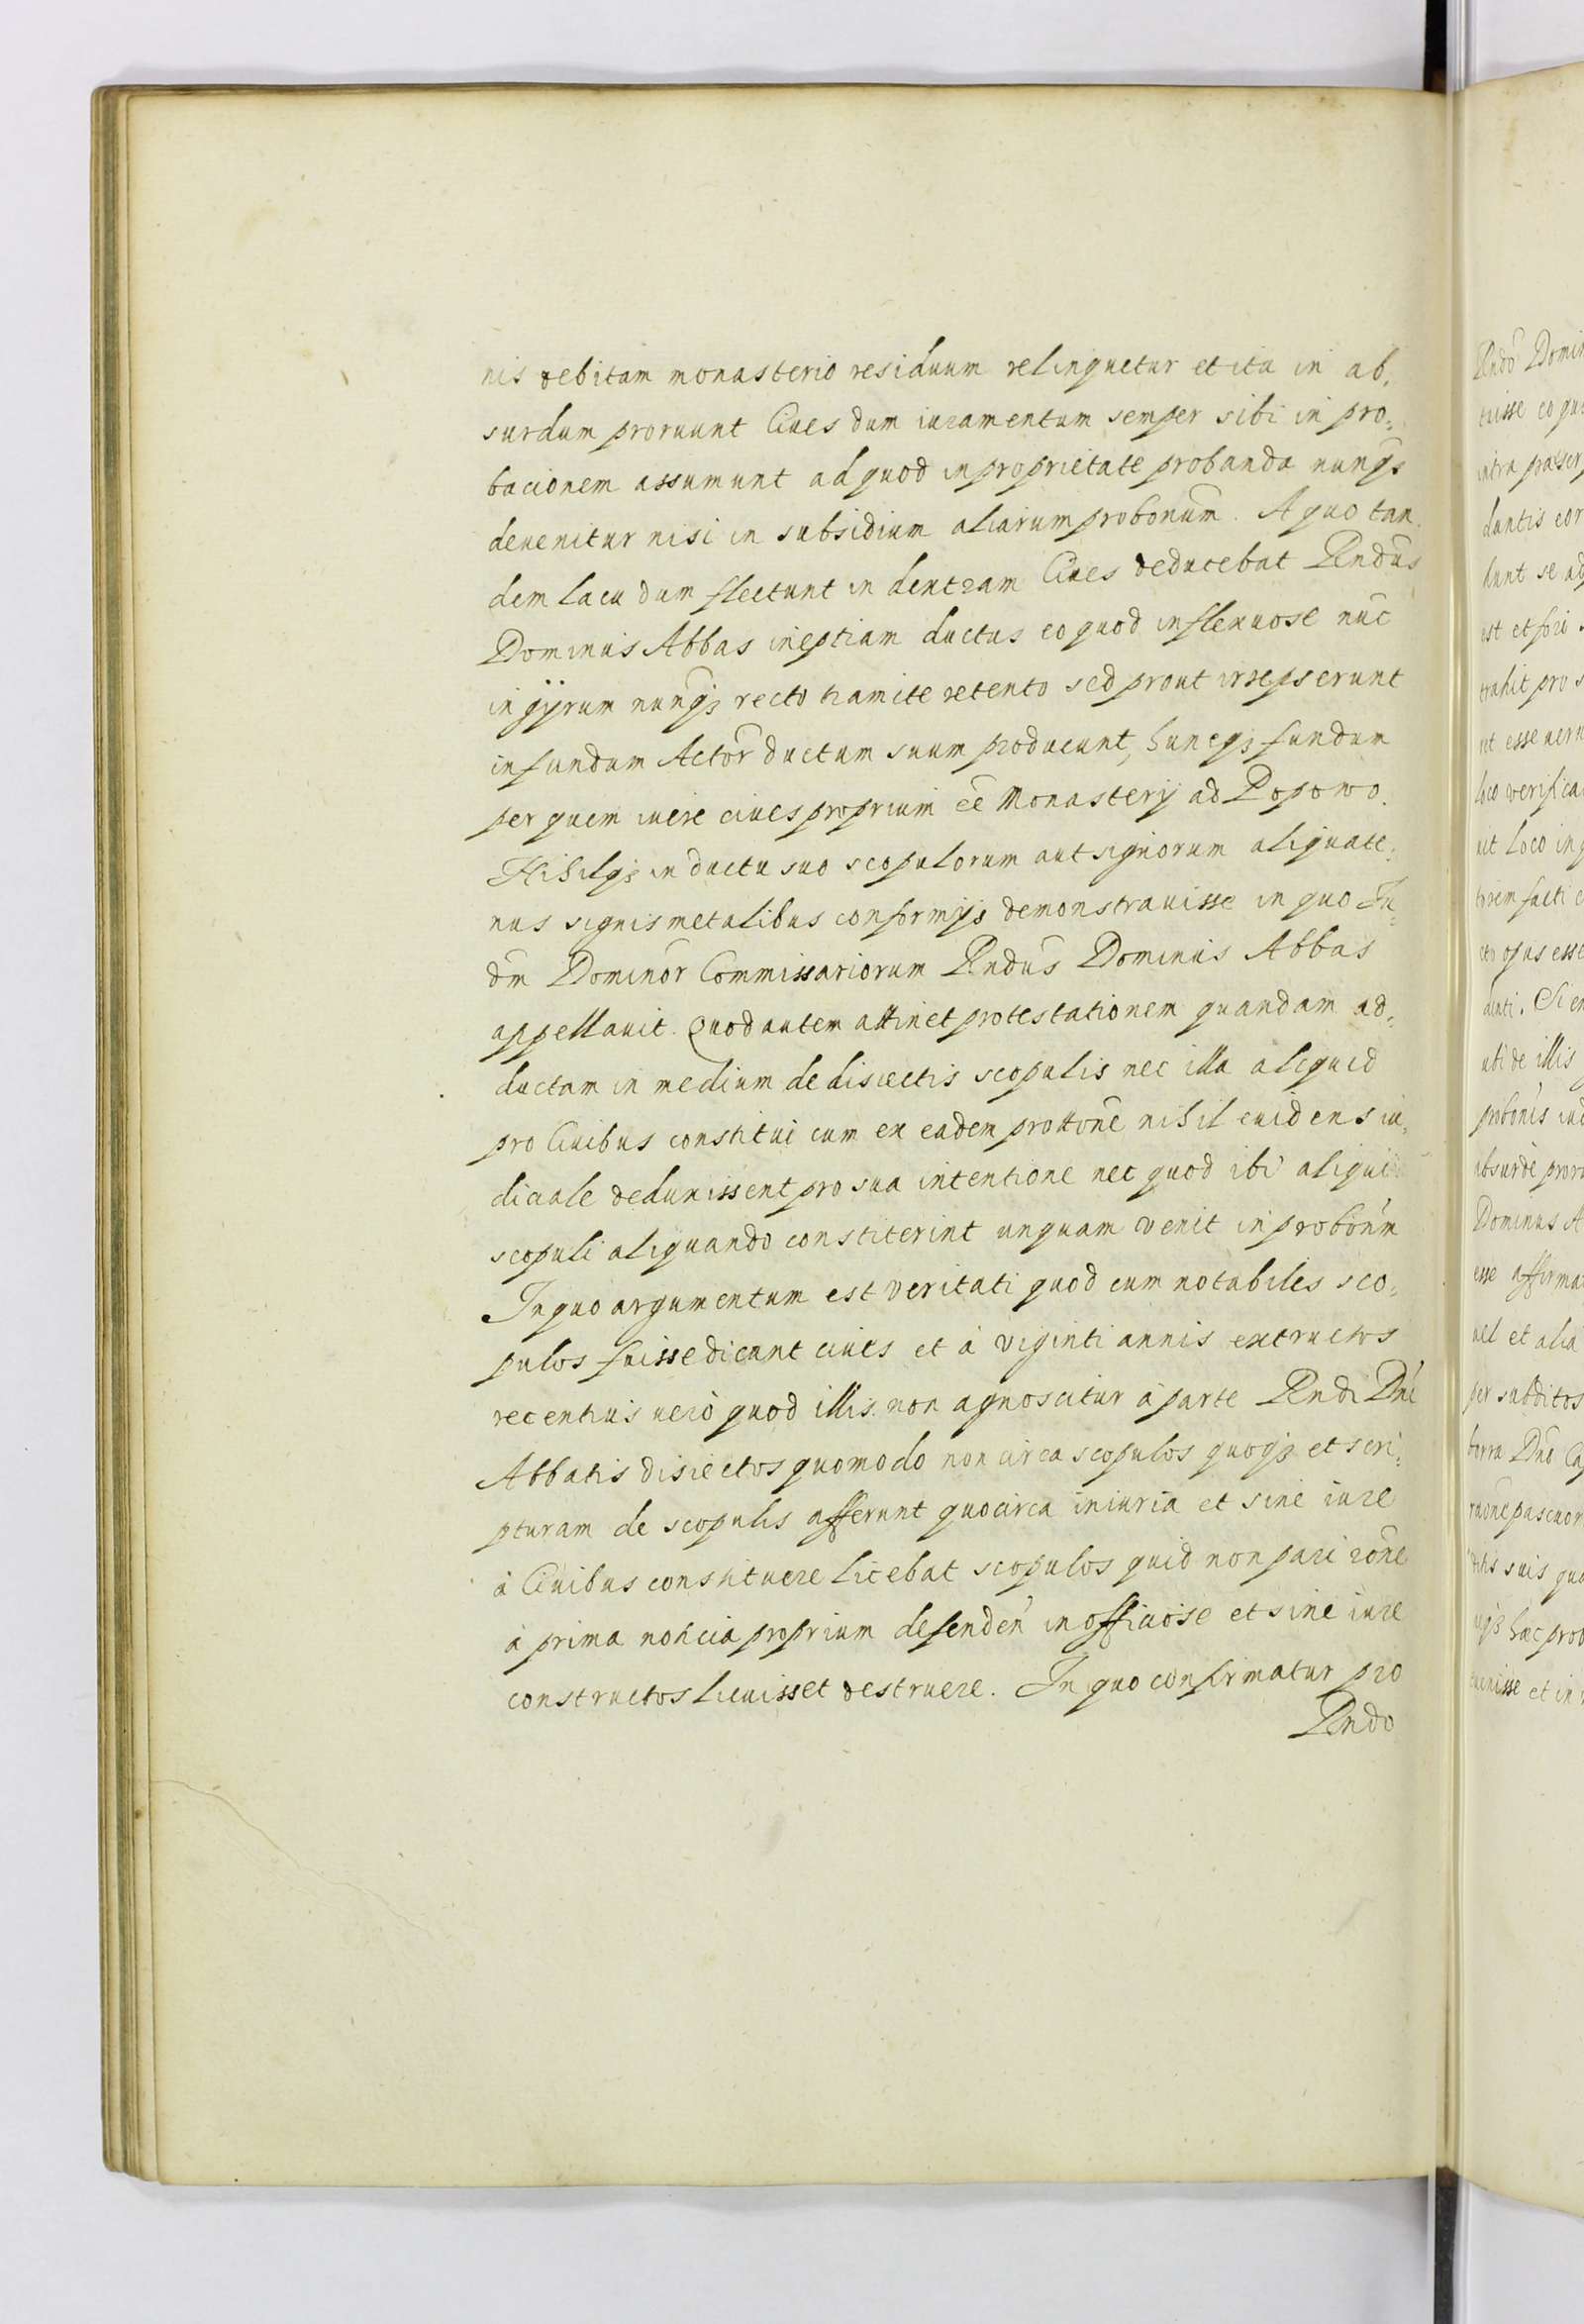 nis debitam monasterio residuum relinquetur et ita in ab,
surdum proruunt Ciues dum iuramentum semper sibi in pro,
bacionem assumunt ad quod in proprietate probanda nunqȝ
deuenitur nisi in subsidium aliarum probonum̃. A quo tan
dem lacu dum flectunt in dextram Ciues deducebat Rndus̃
Dominus Abbas ineptiam ductus eo quod inflexuose nuc̃
in gÿrum nunqȝ recto tramite retento sed prout irrepserunt
in fundum Actor̃ ductum suum producunt, huncqȝ fundum
per quem iuere ciues proprium eẽ Monasterÿ ad Popowo.
Nihilqȝ in ductu suo scopulorum aut signorum aliquate,
nus signis metalibus conformiȝ demonstrauisse in quo Iu,
dm̃ Dominor̃ Commissariorum Rndus̃ Dominus Abbas
appellauit. Quod autem attinet protestationem quandam ad,
ductam in medium de disiectis scopulis nec illa aliquid
pro Ciuibus constitui cum ex eadem prottonẽ nihil euidens iu,
diciale deduxissent pro sua intentione nec quod ibi aliqui
scopuli aliquando constiterint unquam venit in probonm̃
In quo argumentum est veritati quod cum notabiles sco,
pulos fuisse dicant ciues et à viginti annis extructos
recentius uerò quod illis non agnoscitur à parte Rndi Dnĩ
Abbatis disiectos quomodo non circa scopulos quoqȝ et scri,
pturam de scopulis afferunt quocirca iniuria et sine iure
à Ciuibus constituere licebat scopulos quid non pari ronẽ
à prima noticia proprium defenden̄ inofficiose et sine iure
constructos licuisset destruere. In quo confirmatur pro
Rndo